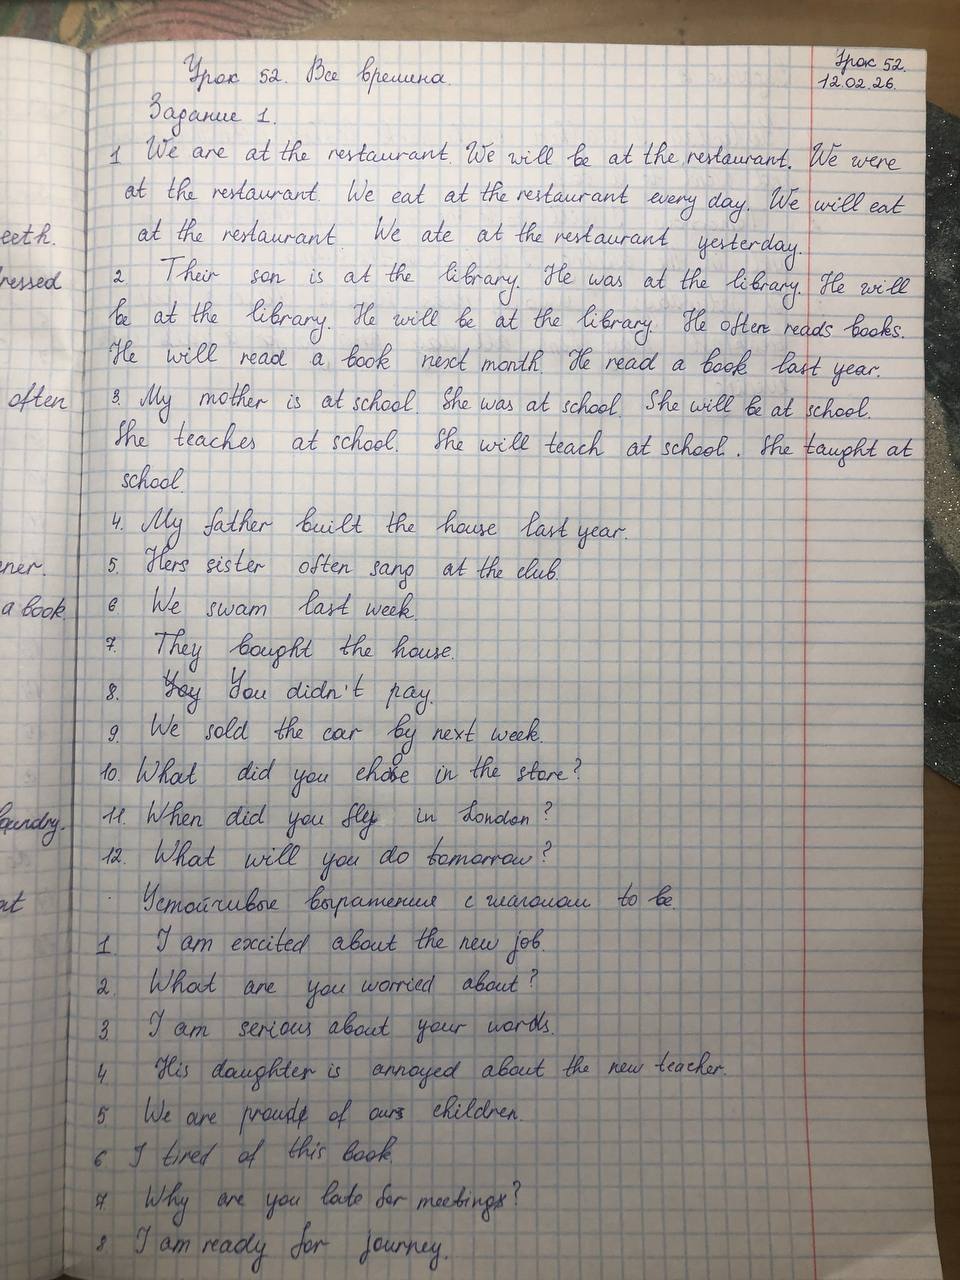 Урок 52. Все времена.
Урок 52.
12.02.26.
Задание 1.
1 We are at the restaurant. We will be at the restaurant. We were
at the restaurant. We eat at the restaurant every day. We will eat
at the restaurant. We ate at the restaurant yesterday.
2 Their son is at the library. He was at the library. He will
be at the library. He will be at the library. He often reads books.
He will read a book next month. He read a book last year.
3. My mother is at school. She was at school. She will be at school.
She teaches at school. She will teach at school. She taught at
school.
4. My father built the house last year.
5. Hers sister often sang at the club.
6 We swam last week.
7. They bought the house.
8. You didn't pay.
9. We sold the car by next week.
10. What did you chose in the store?
11. When did you fly in London?
12. What will you do tomorrow?
Устойчивые выражения с глаголом to be.
1. I am excited about the new job.
2. What are you worried about?
3 I am serious about your words.
4 His daughter is annoyed about the new teacher.
5 We are proud of ours children.
6 I tired of this book.
7 Why are you late for meetings?
8 I am ready for journey.
eeth.
ressed
often
ner.
a book
laundry.
at